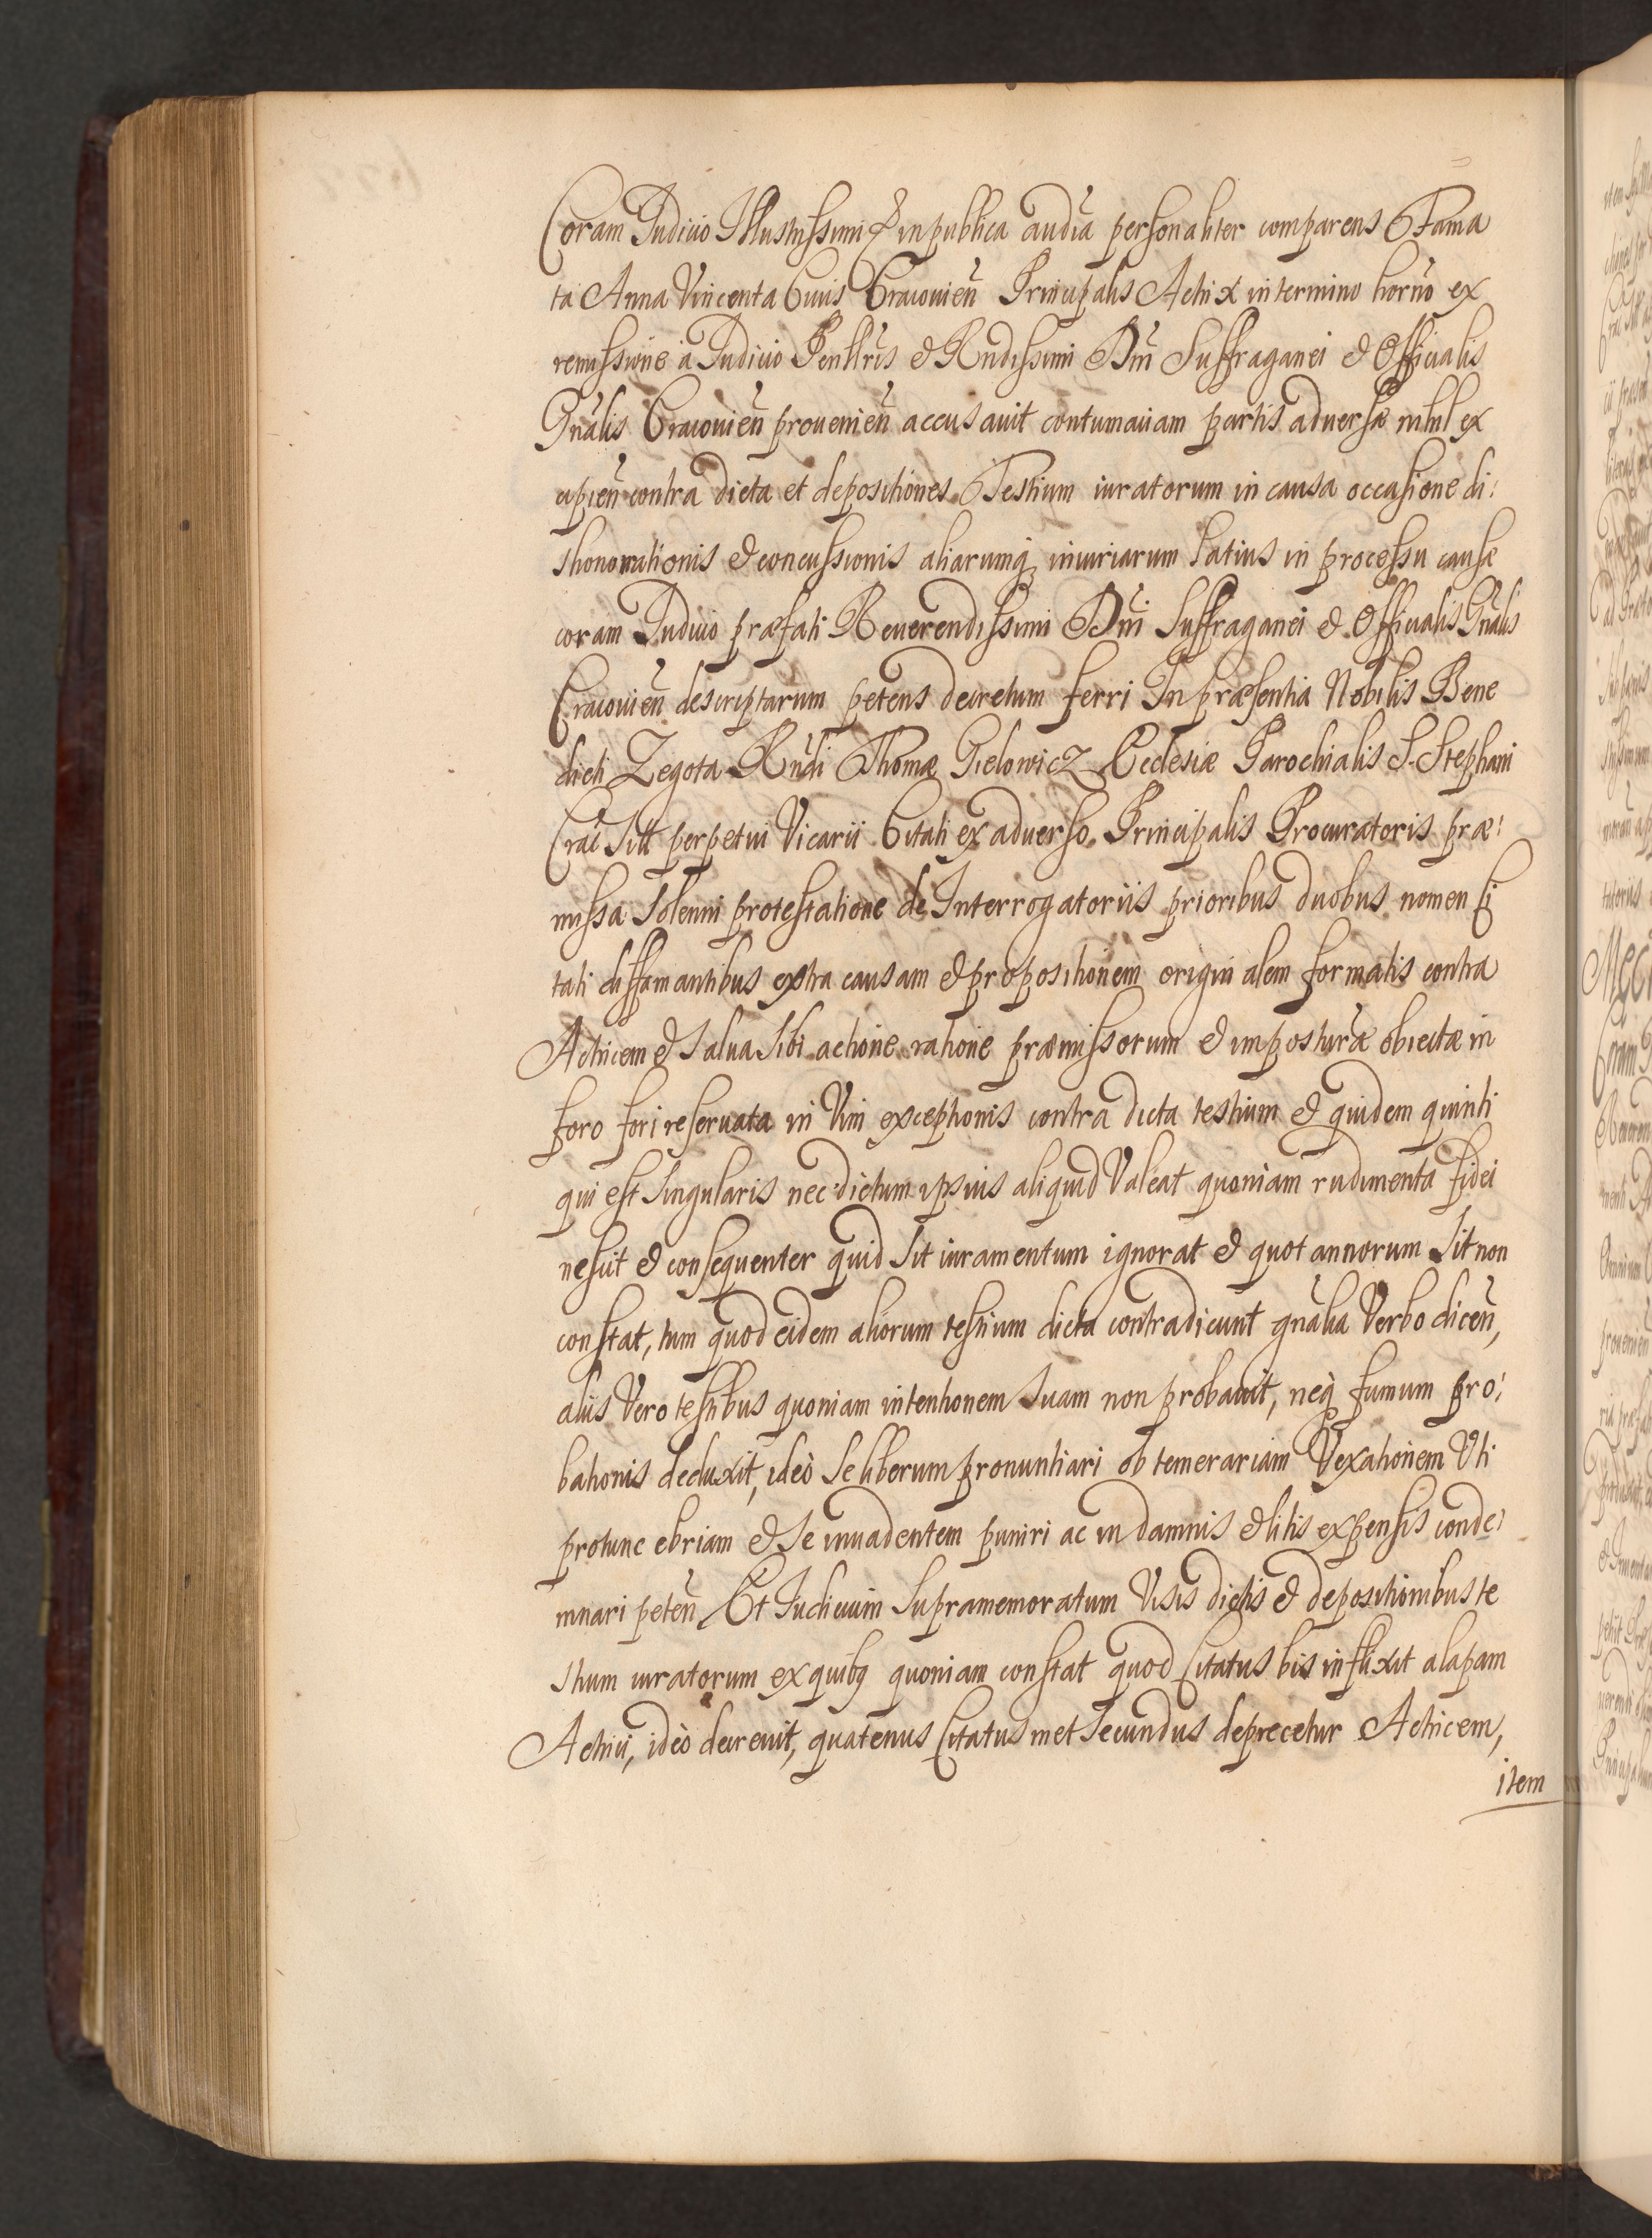 Coram Judicio Illustrissimi & in publica audīa personaliter comparens Fama
ta Anna Vincenta Civis Cracovien̄ Principalis Actrix in termino horno ex
remissione à Judicio Perillris & Rndissimi Dni Suffraganei & Officialis
Gnalis Cracovien̄ provenien̄ accusavit contumaciam partis adversæ nihil ex
cipien̄ contra dicta et depositiones Testium iuratorum in causa occasione di:
shonorationis & concussionis aliarumq; iniuriarum latius in processu causæ
coram Judicio præfati Reverendissimi Dni Suffraganei & Officialis Gnalis
Cracovien̄ descriptarum petens decretum ferri In præsentia Nobilis Bene
dicti Zegota Rndi Thomæ Gielowicz Ecclesiæ Parochialis S. Stephani
Crac̄ Sitt perpetui Vicarii Citati ex adverso Principalis Procuratoris præ:
missa Solenni protestatione de Interrogatoriis prioribus duobus nomen Ci
tati diffamantibus extra causam & propositionem originalem formatis contra
Actricem & Salva Sibi actione ratione præmissorum & imposturæ obiectæ in
foro fori reservata in Vim exceptionis contra dicta testium & quidem quinti
qui est Singularis nec dictum ipsius aliquid Valeat quoniam rudimenta fidei
nescit & consequenter quid Sit iuramentum ignorat & quot annorum Sit non
constat, tum quod eidem aliorum testium dicta contradicunt gnalia Verbo dicen̄,
aliis Vero testibus quoniam intentionem Suam non probavit, neq; fumum pro:
bationis deduxit, ideò Se liberum pronuntiari ob temerariam Vexationem Uti
protunc ebriam & Se invadentem puniri ac in damnis & litis expensis conde:
mnari peten̄ Et Judicium Supramemoratum Visis dictis & depositionibus te
stium iuratorum ex quibq quoniam constat quod Citatus bis inflixit alapam
Actrici, ideò decrevit, quatenus Citatus met Secundus deprecetur Actricem,
item